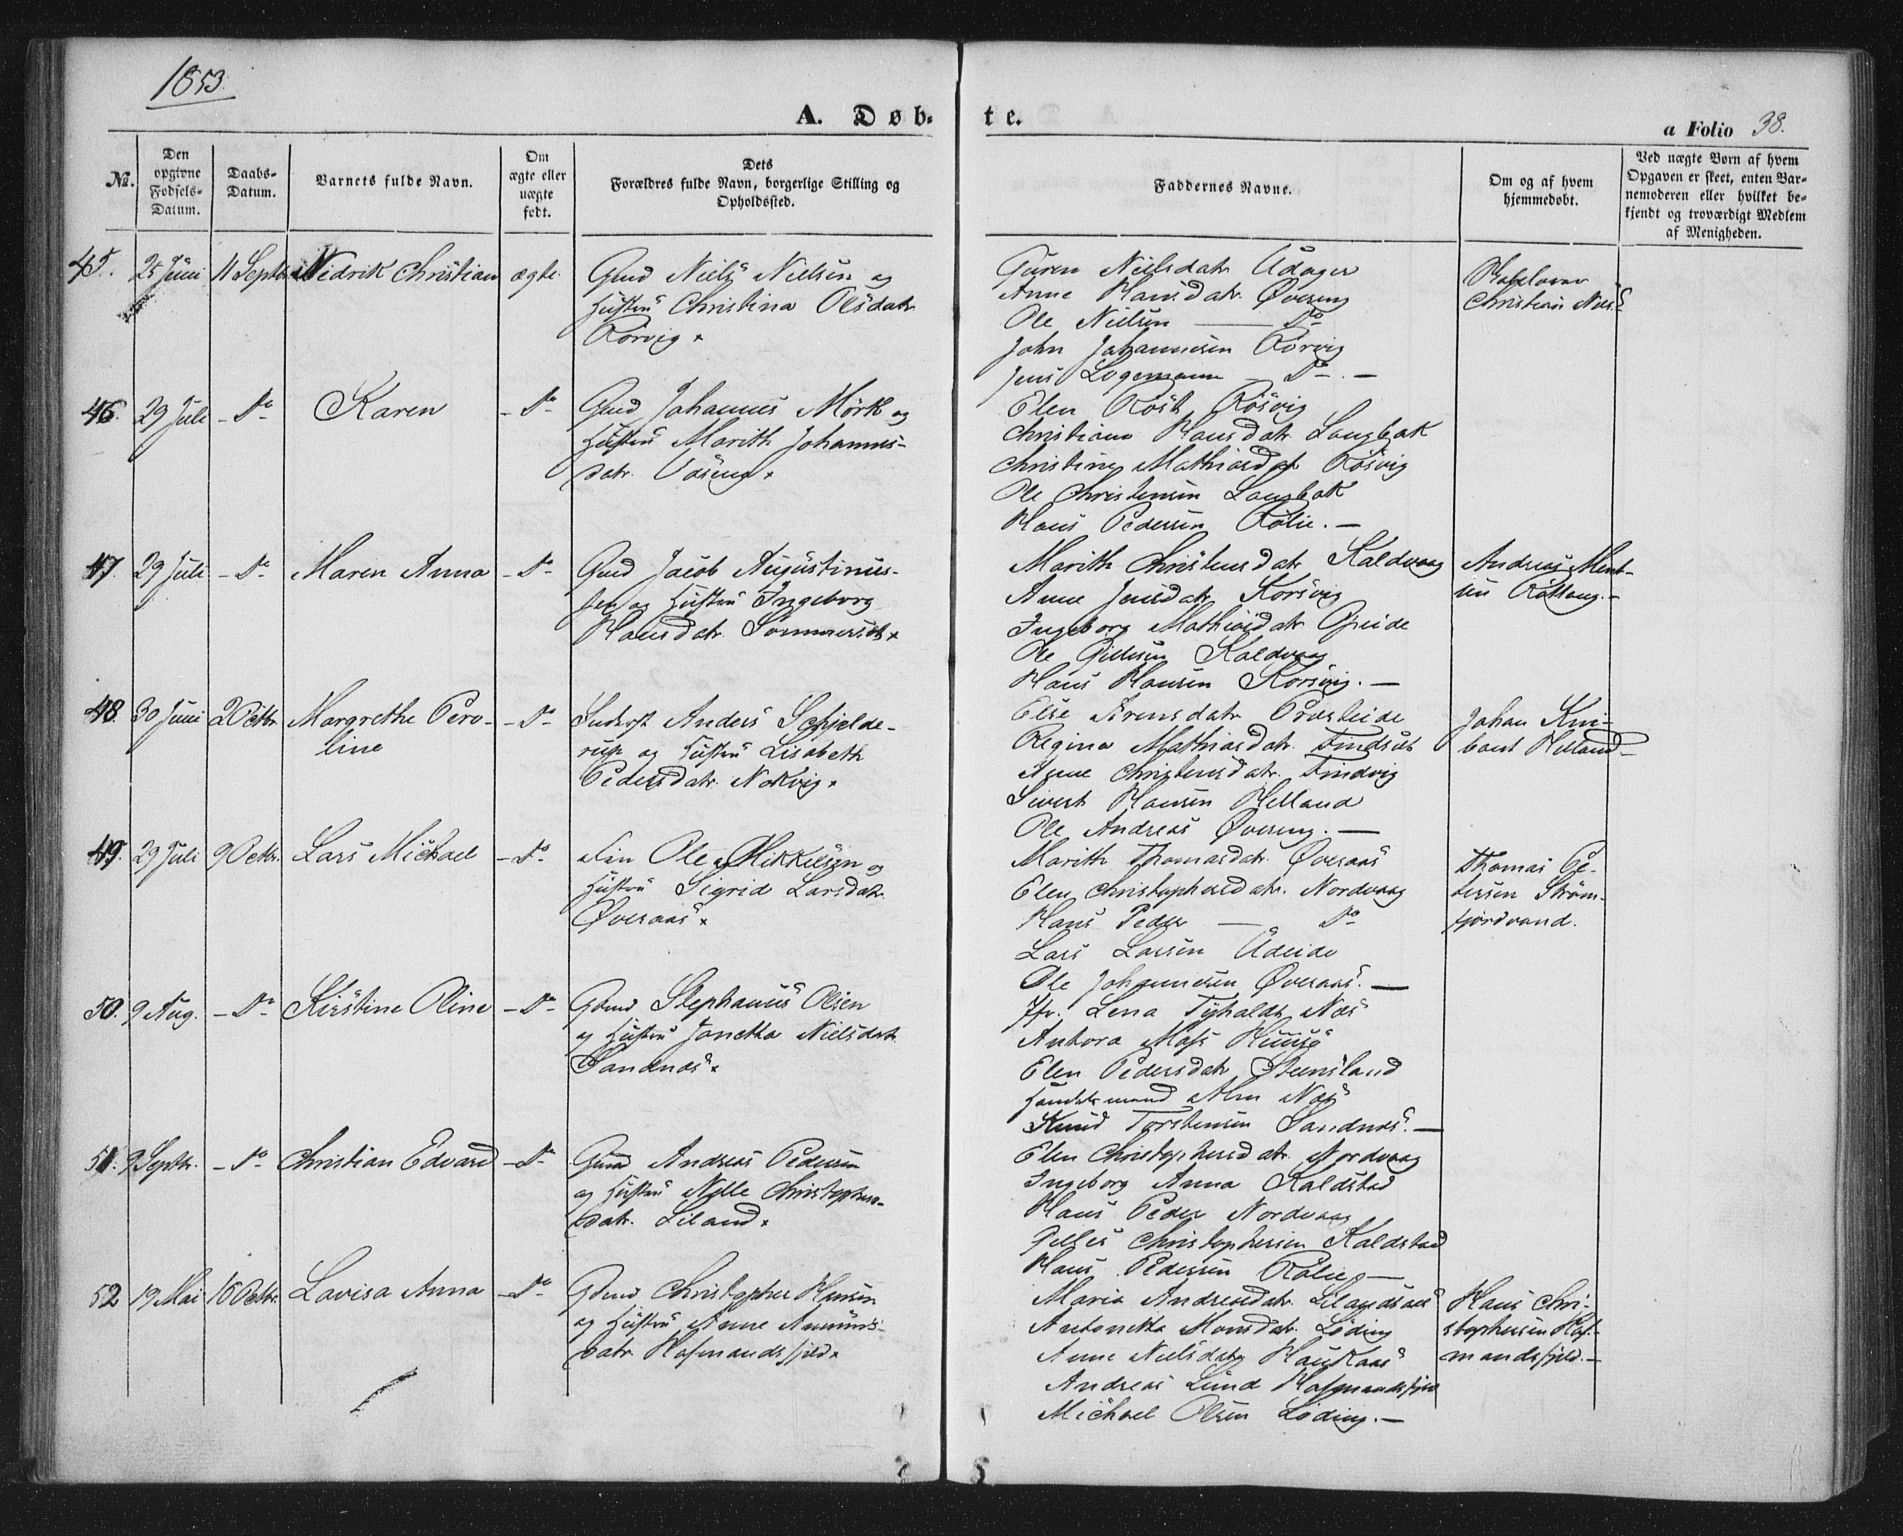 1853.
A. Døb-
te.
a Folio 38.
No.
Den opgivne Fødsels-Datum.
Daabs-Datum.
Barnets fulde Navn.
Om ægte eller uægte født.
Dets
Forældres fulde Navn, borgerlige Stilling og
Opholdssted.
Faddernes Navne.
Om og af hvem
hjemmedøbt.
Ved uægte Børn af hvem
Opgaven er skeet, enten Bar-
nemoderen eller hvilket be-
kjendt og troværdigt Medlem
af Menigheden.
45. 25 Juni 11 Septbr Nidrik Christian ægte. Gmd Niels Nielsen og
Hustru Christina Olsdatr
Rørvig
Guren Nielsdatr
Anne Hansdatr. Øvereng
Ole Nielsen — Do
John Johannesen Rørvig
Jens Logemann — Do. —
Christian
46. 29 Juli - Do Karen - Do Gmd Johannes Mörk og
Hustru Marith Johannes-
datr.
Elen Røsvig
Christiana Hansdatr Langbak
Christina Mathiasdatr Røsvig
Ole Christensen Langbak
Hans Pedersen Rølie. —
47. 29 Juli - Do Maren Anna - Do Gmd Jacob Augustinus-
sen og Hustru Ingeborg
Hansdatr. Sommerset
Marith Christensdatr Kaldvaag
Anne Jensdatr Korsvig
Ingeborg Mathiasdatr
Ole Gillesen Kaldvaag
Hans Hansen Korsvig. —
Andreas Ment-
sen
48. 30 Juni 2 Octbr Margrethe Pero-
line - Do Inderst Anders Schjelde-
rup og Hustru Lisabeth
Pedersdatr. Nokvig
Else Arensdatr Præsteide
Regina Mathiasdatr. Findset
Anne Christensdatr. Findvig
Sivert Hansen Helland
Ole Andreas Øvereng. —
Johan
Helland —
49. 29 Juli 9 Octbr. Lars Michael - Do. Fin Ole Mikkelsen og
Hustru Sigrid Larsdatr.
Øveraas
Marith Thomasdatr. Øveraas
Elen Christophersdatr. Nordvaag
Hans Peder — Do
Lars Larsen Udeide
Ole Johannesen Øveraas. —
Thomas Pe-
tersen Strøm-
fjordvand.
50. 9 Aug. - Do Kirstine Oline - Do Gbmd Stephanus Olsen
og Hustru Janetta Nielsdatr
Sandnæs
Jfr. Lena Næs
Antora Moss
Elen Pedersdatr Steensland
Handelsmand Næs
Knud Torstensen Sandnæs. —
51. 9 Septbr. - Do Christian Edvard - Do Gmd Andreas Pedersen
og Hustru Nelle Christophers-
datr. Liland
Elen Christophersdatr. Nordvaag
Ingeborg Anna Kaldstad
Hans Peder Nordvaag
Gilles Christophersen Kaldstad
Hans Pedersen Rølie —
52 19 Mai 16 Octbr. Lovisa Anna - Do Gbmd Christopher Hansen
og Hustru Anne Amunds-
datr. Hafmandsfjeld
Maria Andreasdatr.
Antonetta Monsdatr. Løding
Anne Nielsdatr Haukaas
Andreas Lund Hafmandsfjeld
Michael Olsen Løding. —
Hans Chri-
stophersen Haf-
mandsfjeld. —